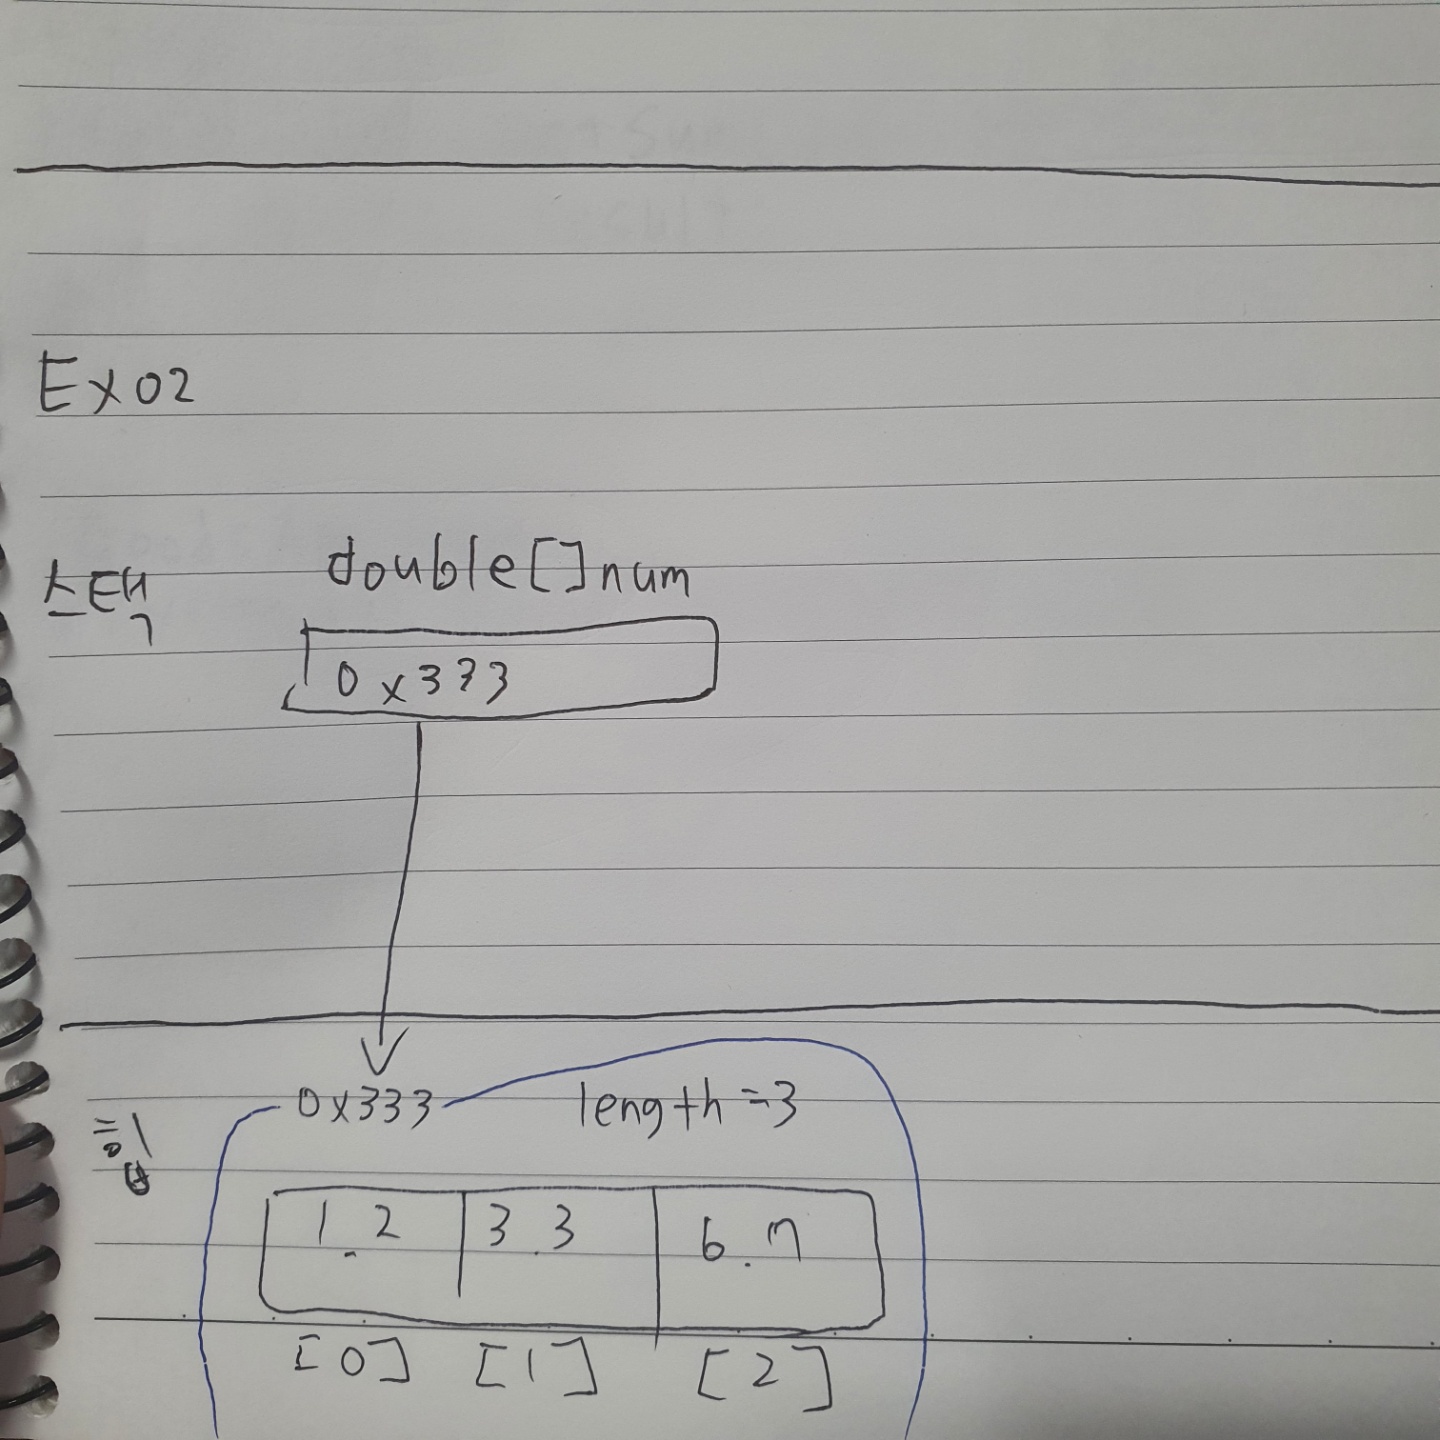 Ex02
스택
double[]num
0x333
0x333
length=3
힙영
1.2 3.3 6.7
[0] [1] [2]